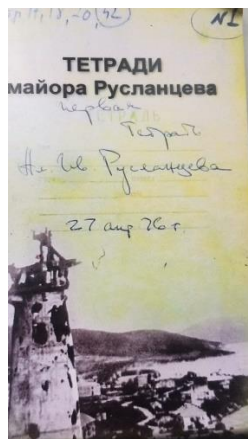 №1
ТЕТРАДИ
майора Русланцева
первая
Тетрадь
Ал. Ив. Русланцева
27 апр 76 г.